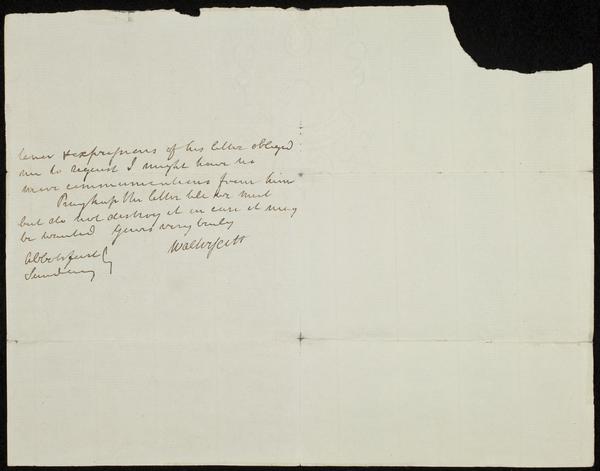 tenor & expressions of his letter obliged
me to request I might have no
more communications from him
Pray keep the letter till we meet
but do not destroy it in case it may
be wanted Yours very truly
Abbotsford Walter Scott
Sunday